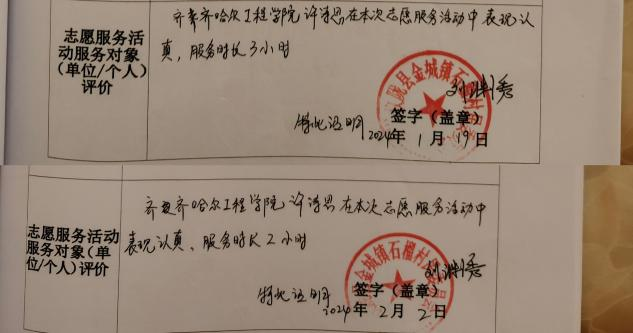 志愿服务活
动服务对象
(单位/个人)
评价
齐齐哈尔工程学院 许诗思 在本次志愿服务活动中表现认
真,服务时长3小时
特此证明
签字(盖章)
2024年1月19日
县金城镇石榴村
志愿服务活动
服务对象(单
位/个人)评价
齐齐哈尔工程学院 许诗思 在本次志愿服务活动中
表现认真、服务时长2小时
特此证明
签字(盖章)
2024年2月2日
县金城镇石榴村